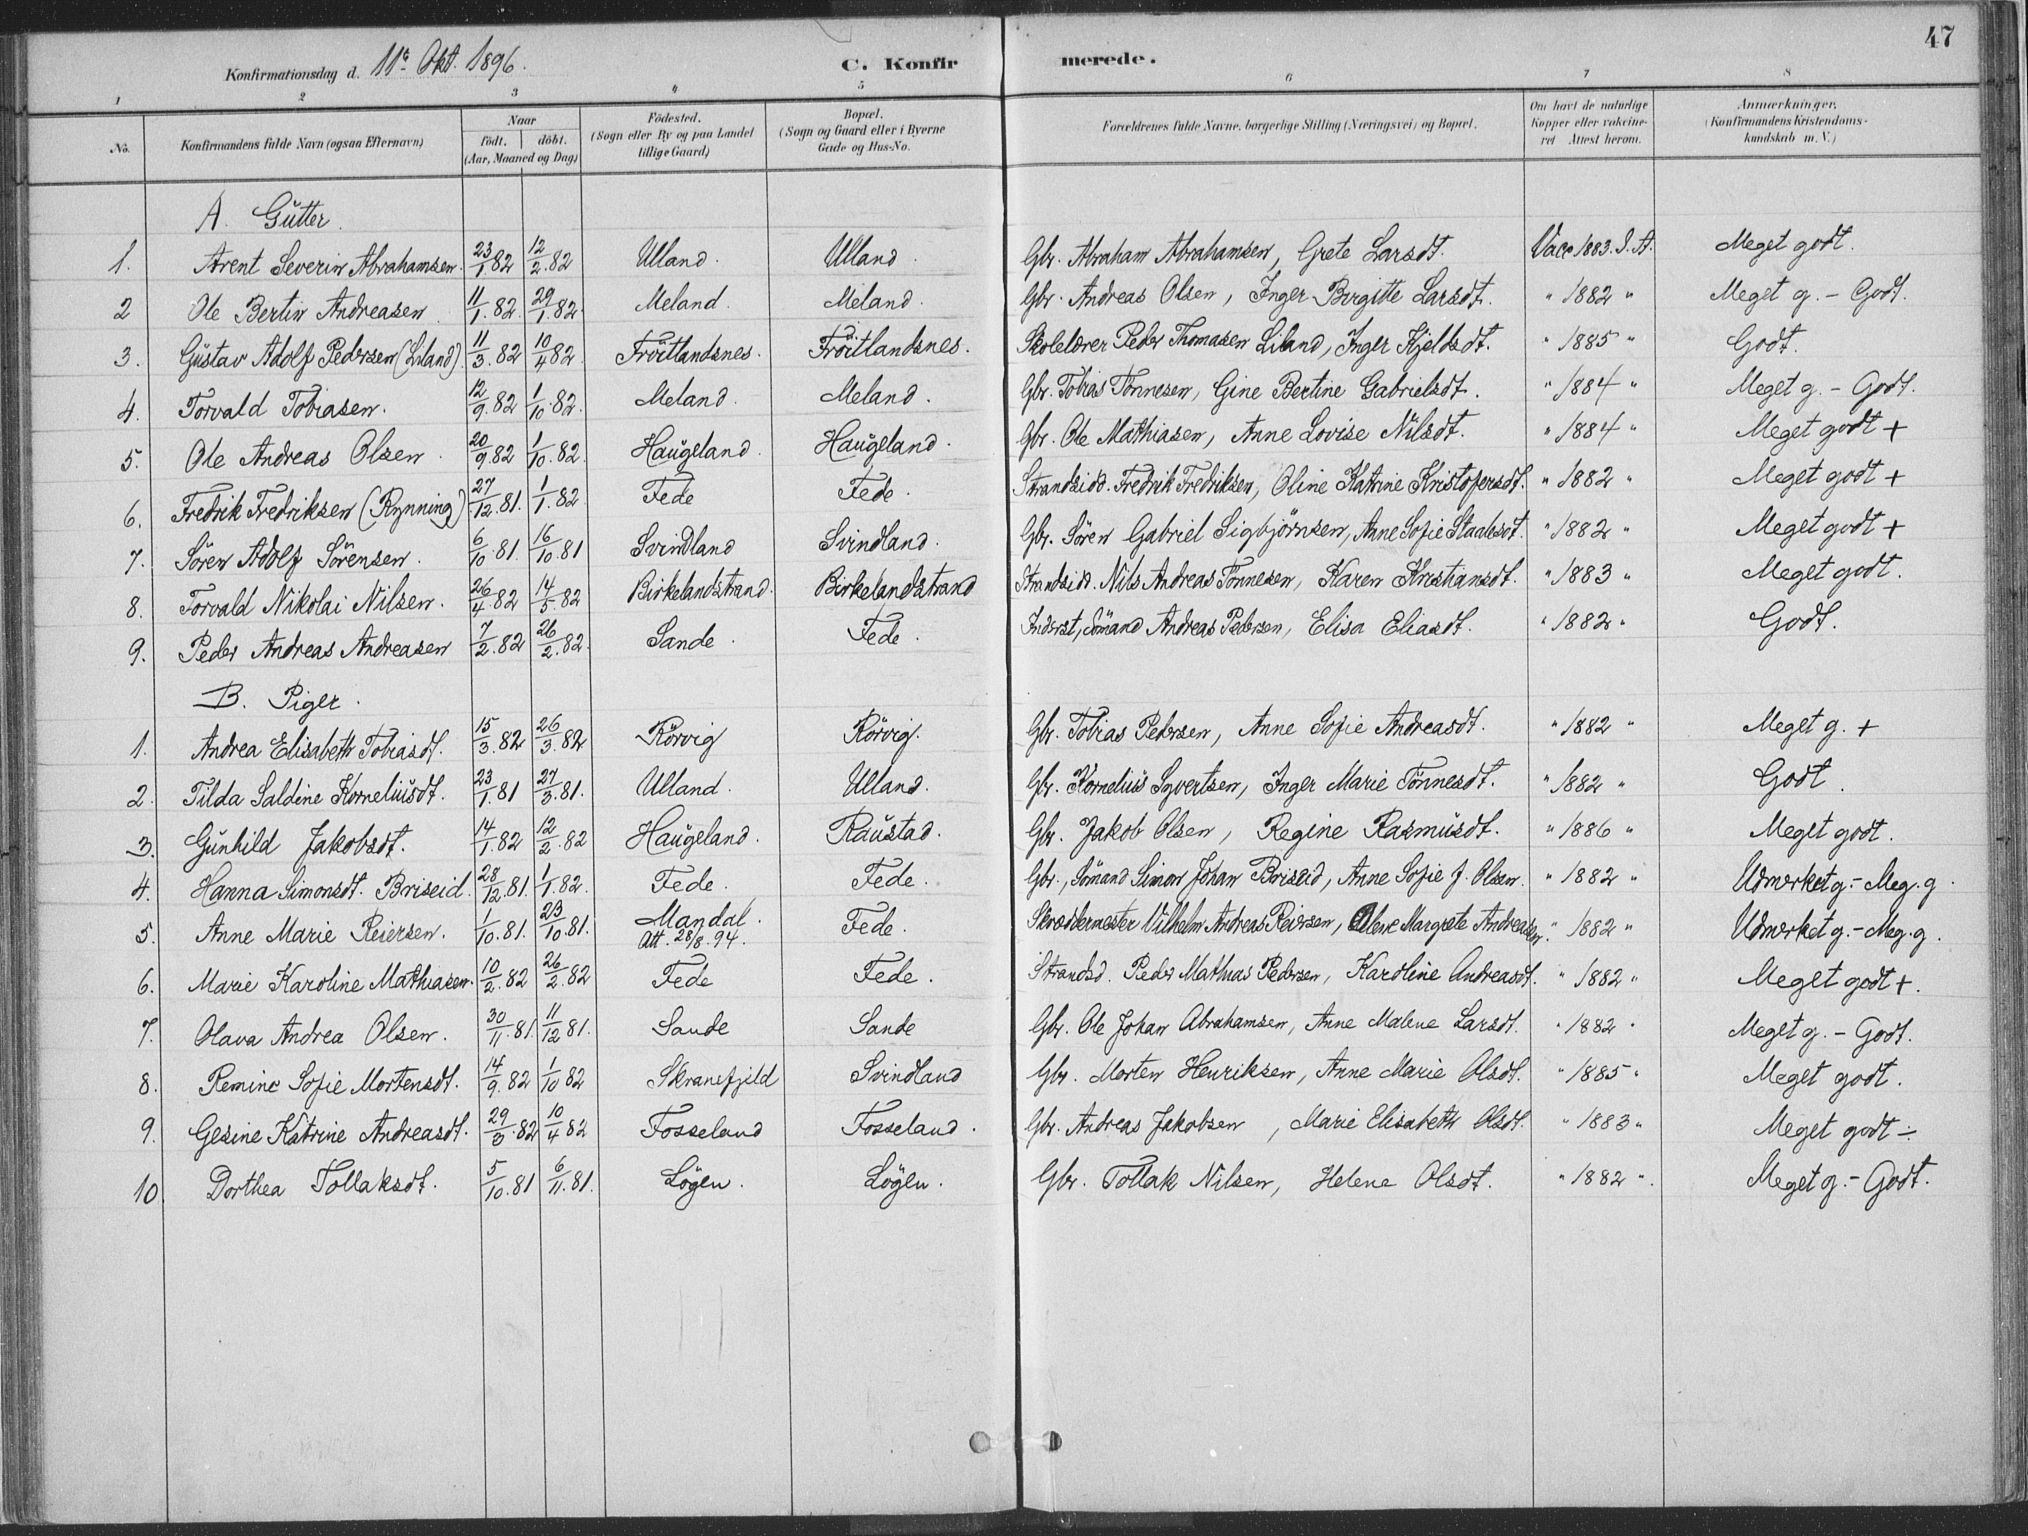 47
Konfirmationsdag d. 11te Okt. 1896.
C. Konfirmerede.
1 2 3 4 5 6 7 8
No. Konfirmandens fulde Navn (ogsaa Efternavn) Naar födt. döbt. (Aar, Maaned og Dag) Födested. (Sogn eller By og paa Landet tillige Gaard) Bopæl. (Sogn og Gaard eller i Byerne Gade og Hus-No. Forældrenes fulde Navne, borgerlige Stilling (Næringsvei) og Bopæl. Om havt de naturlige Kopper eller vakcineret Attest herom. Anmærkninger. (Konfirmandens Kristendomskundskab m. V.)
A. Gutter.
1. Arent Severin Abrahamsen. 23/1 82 12/2.82 Ulland. Ulland. Gbr. Abraham Abrahamsen, Grete Larsdt. Vacc 1883. I. A. Meget godt.
2 Ole Bertin Andreasen 11/1.82 29/1.82 Meland. Meland. Gbr. Andreas Olsen, Inger Birgitte Larsdt. " 1882 " Meget g. - Godt.
3. Gustav Adolf Pedersen (Liland). 11/3.82 10/4 82 Fröitlandsnes. Fröitlandsnes. Skolelærer Peder Thomasen Liland, Inger Kjeldsdt. " 1885 " Godt.
4. Torvald Tobiasen. 12/9.82 1/10.82 Meland. Meland. Gbr. Tobias Tönnesen, Gine Bertine Gabrielsdt. " 1884 " Meget g. - Godt.
5. Ole Andreas Olsen. 20/9 82 1/10.82 Haugeland. Haugeland. Gbr. Ole Mathiasen, Anne Lovise Nilsdt. " 1884 " Meget godt +
6. Fredrik Fredriksen (Rynning) 27/12.81. 1/1.82 Fede Fede. Strandsidd. Fredrik Fredriksen, Oline Katrine Kristofersdt. " 1882 " Meget godt +
7. Sören Adolf Sörensen. 6/10.81. 16/10.81 Svindland Svindland. Gbr. Sören Gabriel Sigbjörnsen, Anne Sofie Staalesdt. " 1882 " Meget godt +
8. Torvald Nikolai Nilsen. 26/4.82 14/5.82 Birkelandstrand. Birkelandstrand Strandsidd. Nils Andreas Tönnesen, Karen Kristiansdt. " 1883 " Meget godt.
9. Peder Andreas Andreasen 7/2.82 26/2.82. Sande. Fede. Inderst, Sömand Andreas Pedersen, Elisa Eliasdt. " 1882 " Godt.
B. Piger.
1. Andrea Elisabeth Tobiasdt. 15/3.82 26/3.82 Rörvig Rörvig. Gbr. Tobias Pedersen, Anne Sofie Andreasdt. " 1882 " Meget g. +
2. Tilda Saldine Korneliusdt. 23/1.81 27/3.81. Ulland. Ulland. Gbr. Kornelius Syvertsen, Inger Marie Tönnesdt. " 1882 " Godt.
3. Gunhild Jakobsdt. 14/1.82 12/2.82 Haugeland. Raustad. Gbr. Jakob Olsen, Regine Rasmusdt. " 1886 " Meget godt.
4. Hanna Simonsdt. Briseid. 28/12.81. 1/1.82. Fede. Fede. Gbr., Sömand Simon Johan Briseid, Anne Sofie J. Olsen. " 1882 " Udmærket g. - Meg. g.
5. Anne Marie Reiersen. 1/10.81. 23/10.81. Mandal. Att. 28/8.94. Fede. Skræddermester Vilhelm Andreas Reiersen, Olene Margrete Andreasen. " 1882 " Udmærket g. - Meg. g.
6. Marie Karoline Mathiasen. 10/2.82 26/2.82 Fede Fede. Strandsd. Peder Mathias Pedersen, Karoline Andreasdt. " 1882 " Meget godt +.
7. Olava Andrea Olsen. 30/11.81. 11/12 81. Sande Sande Gbr. Ole Johan Abrahamsen, Anne Malene Larsdt. " 1882 " Meget g. - Godt.
8. Remine Sofie Mortensdt. 14/9.82 1/10 82 Skranefjeld Svindland Gbr. Morten Henriksen, Anne Marie Olsdt. " 1885 " Meget godt.
9. Gesine Katrine Andreasdt. 29/3.82 10/4 82 Fosseland Fosseland. Gbr. Andreas Jakobsen, Marie Elisabeth Olsdt. " 1883 " Meget godt ÷
10. Dorthea Tollaksdt. 5/10.81 6/11.81. Lögen. Lögen. Gbr. Tollak Nilsen, Helene Olsdt. " 1882 " Meget g. - Godt.